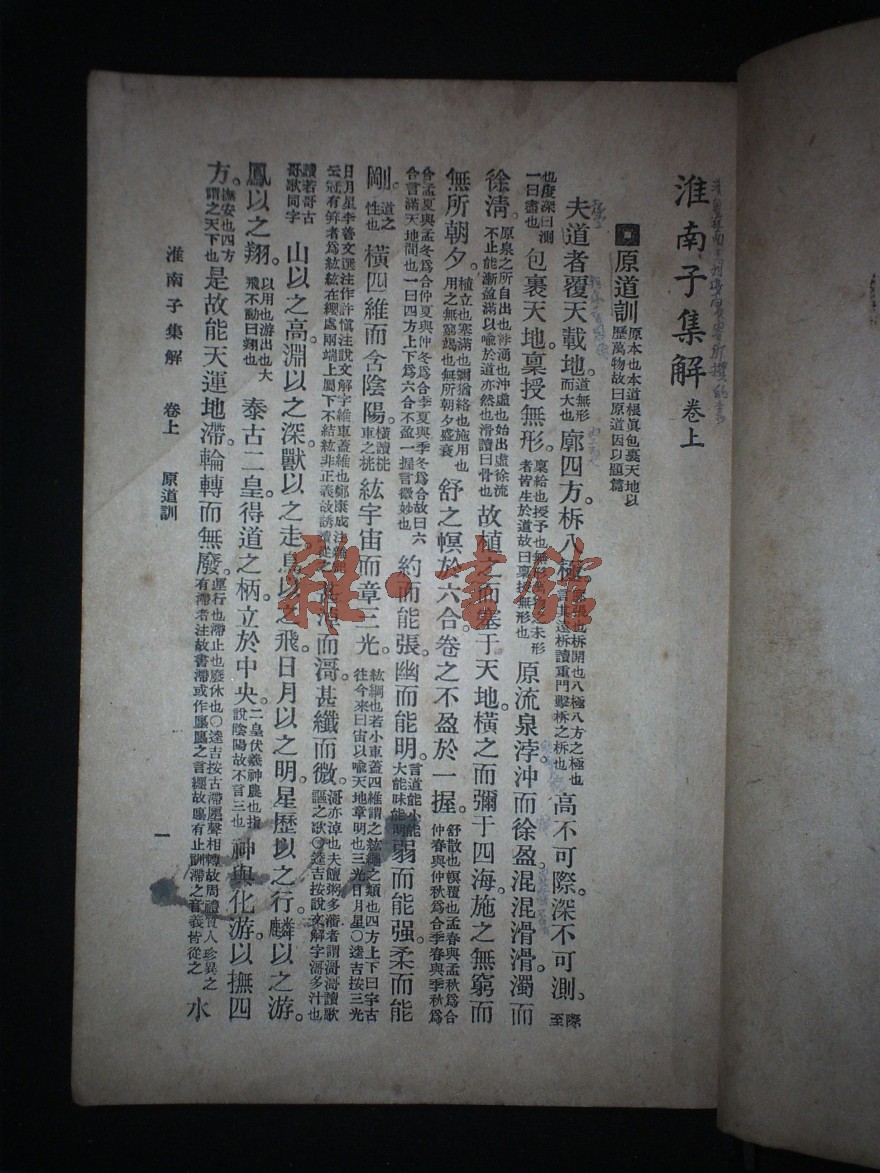 淮南子集解 卷上
原道訓 原本也本道根眞包裹天地以歷萬物故曰原道因以題篇
夫道者覆天載地。道無形而大也 廓四方柝八極 張也柝開也八極八方之極也柝讀重門擊柝之柝也 高不可際。深不可測。際至
也度深曰測一曰盡也 包裹天地稟授無形。稟給也授予也無形萬物之未形者皆生於道故曰稟授無形也 原流泉浡。沖而徐盈混混滑滑。濁而
徐淸。原泉之所自出也浡湧也沖虛也始出虛徐流不止能漸盈滿以喩於道亦然也滑讀曰骨也 故植之而塞于天地橫之而彌于四海。施之無窮而
無所朝夕。植立也塞滿也彌猶絡也施用也用之無窮竭也無所朝夕盛衰 舒之幎於六合。卷之不盈於一握。舒散也幎覆也孟春與孟秋爲合仲春與仲秋爲合季春與季秋爲
合孟夏與孟冬爲合仲夏與仲冬爲合季夏與季冬爲合故曰六合言滿天地間也一曰四方上下爲六合不盈一握言微妙也 約而能張。幽而能明。言道能小能大能昧能明 弱而能强。柔而能
剛。道之性也 橫四維而含陰陽。橫讀桄車之桄 紘宇宙而章三光。紘綱也若小車蓋四維謂之紘繩之類也四方上下曰宇古往今來曰宙以喩天地章明也三光日月星○逵吉按三光
日月星李善文選注作許愼注說文解字維車蓋維也鄭康成注云冠有笄者爲紘紘在纓處兩端上屬下不結紘非正義故誘讀從之 甚淖而滒。甚纖而微。滒亦淖也夫饘粥多瀋者謂滒滒讀歌謳之歌○逵吉按說文解字滒多汁也
讀若哥古哥歌同字 山以之高。淵以之深。獸以之走。鳥以之飛。日月以之明。星歷以之行。麟以之游。
鳳以之翔。以用也游出也大飛不動曰翔也 泰古二皇。得道之柄。立於中央。二皇伏羲神農也指說陰陽故不言三也 神與化游。以撫四
方。撫安也四方謂之天下也 是故能天運地滯。輪轉而無廢。運行也滯止也廢休也○逵吉按古滯廛聲相轉故周禮人珍異之有滯者注故書滯或作廛廛之言纏故廛有止訓滯之音義皆從之 水
淮南子集解 卷上 原道訓 一
雜·書館